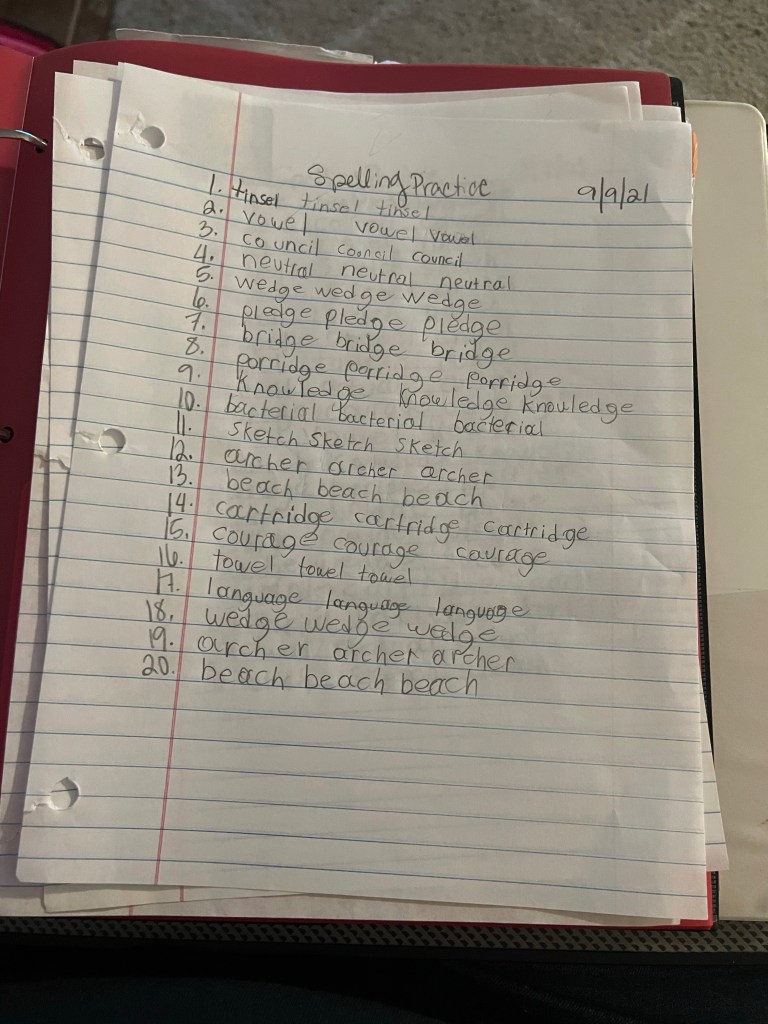 Spelling Practice 9/9/21
1. tinsel tinsel tinsel
2. vowel vowel vowel
3. council council council
4. neutral neutral neutral
5. wedge wedge wedge
6. pledge pledge pledge
7. bridge bridge bridge
8. porridge porridge porridge
9. Knowledge knowledge knowledge
10. bacterial bacterial bacterial
11. sketch sketch sketch
12. archer archer archer
13. beach beach beach
14. cartridge cartridge cartridge
15. courage courage courage
16. towel towel towel
17. language language language
18. wedge wedge wedge
19. archer archer archer
20. beach beach beach